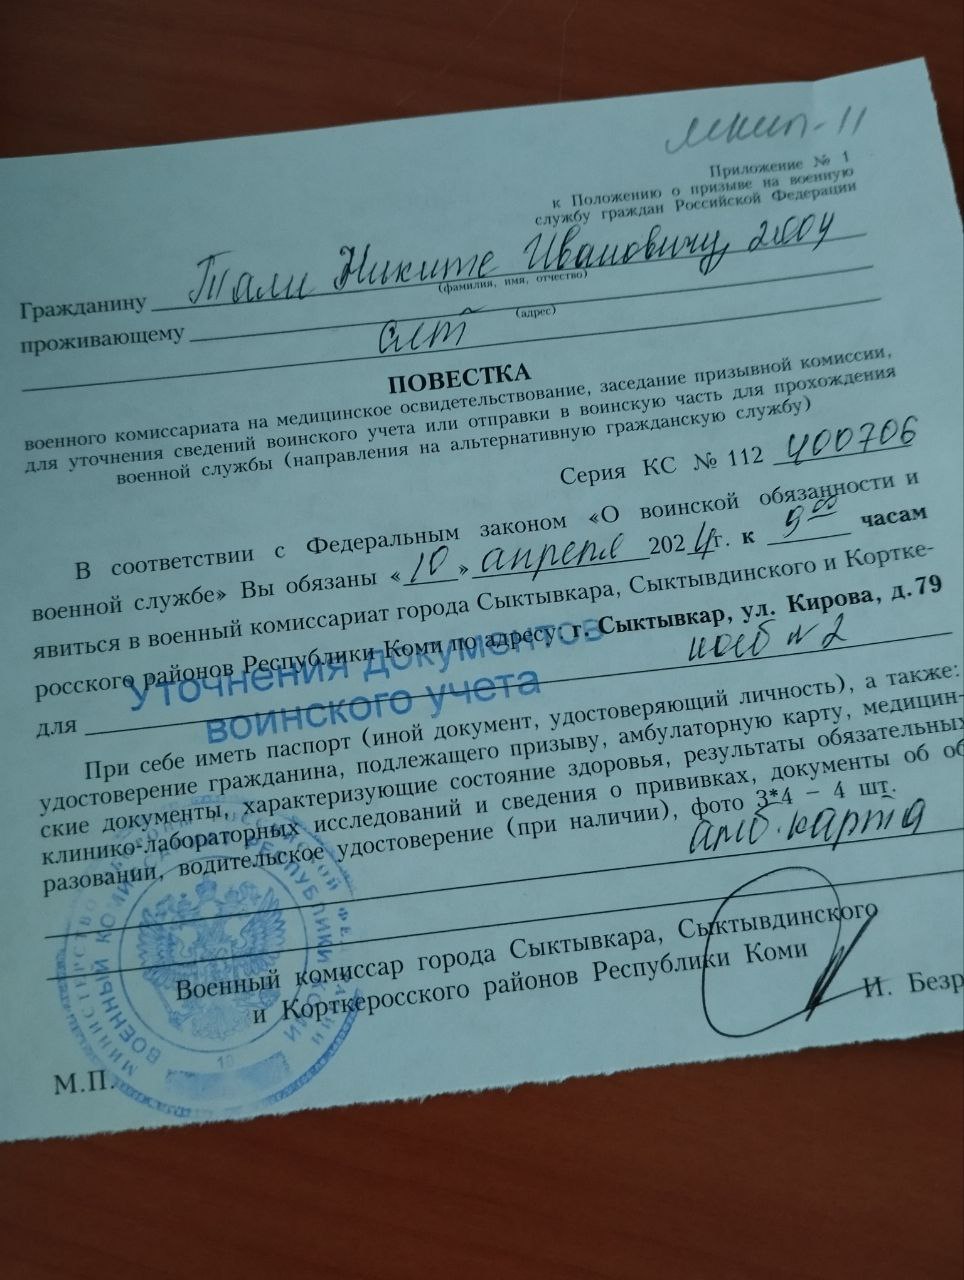 Приложение № 1
к Положению о призыве на военную
службу граждан Российской Федерации
Гражданину Тали Никите Ивановичу 2004
(фамилия, имя, отчество)
проживающему
(адрес)
ПОВЕСТКА
военного комиссариата на медицинское освидетельствование, заседание призывной комиссии,
для уточнения сведений воинского учета или отправки в воинскую часть для прохождения
военной службы (направления на альтернативную гражданскую службу)
Серия КС № 112 400706
В соответствии с Федеральным законом «О воинской обязанности и
военной службе» Вы обязаны «10» апреля 2024г. к 9 00 часам
явиться в военный комиссариат города Сыктывкара, Сыктывдинского и Кортке-
росского районов Республики Коми по адресу: г. Сыктывкар, ул. Кирова, д.79
Уточнения документов
воинского учета
для каб N 2
При себе иметь паспорт (иной документ, удостоверяющий личность), а также:
удостоверение гражданина, подлежащего призыву, амбулаторную карту, медицин-
ские документы, характеризующие состояние здоровья, результаты обязательных
клинико-лабораторных исследований и сведения о прививках, документы об об
разовании, водительское удостоверение (при наличии), фото 3*4 – 4 шт.
амб. карта
Военный комиссар города Сыктывкара, Сыктывдинского
и Корткеросского районов Республики Коми
И. Безр
М.П.